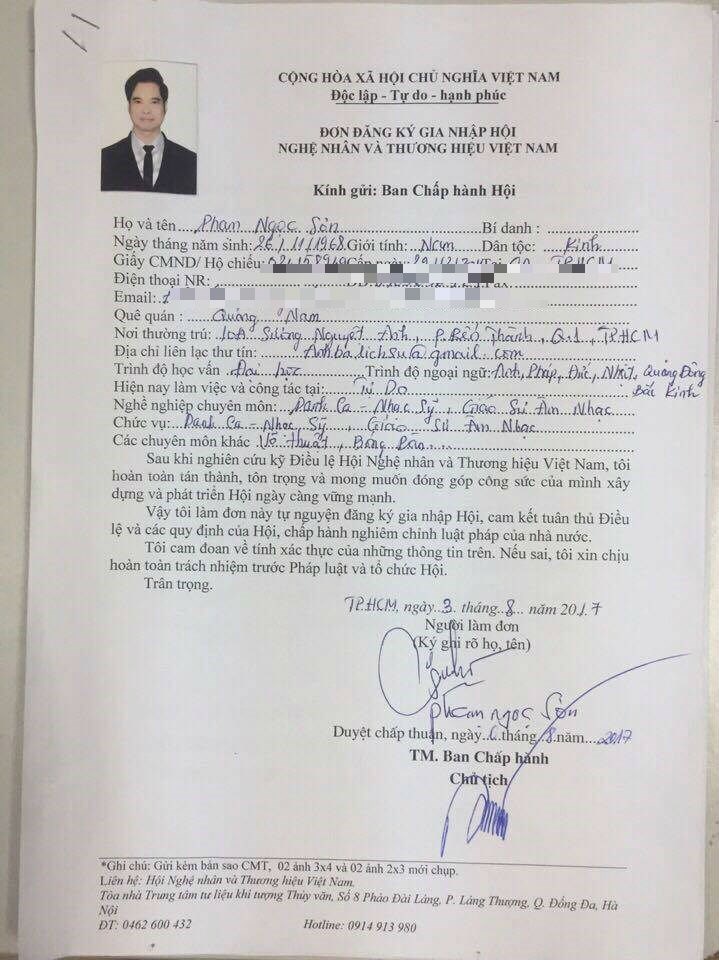 CỘNG HÒA XÃ HỘI CHỦ NGHĨA VIỆT NAM
Độc lập - Tự do - hạnh phúc
ĐƠN ĐĂNG KÝ GIA NHẬP HỘI
NGHỆ NHÂN VÀ THƯƠNG HIỆU VIỆT NAM
Kính gửi: Ban Chấp hành Hội
Họ và tên Phan Ngọc Sơn Bí danh :
Ngày tháng năm sinh: 26/11/1968 Giới tính: Nam Dân tộc: Kinh
Giấy CMND/ Hộ chiếu: Cấp ngày: TPHCM
Điện thoại NR:
Email:
Quê quán : Quảng Nam
Nơi thường trú: 10A Sương Nguyệt Ánh, P. Bến Thành, Q.1, TPHCM
Địa chỉ liên lạc thư tín: Anhbalichsu@gmail.com
Trình độ học vấn Đại học Trình độ ngoại ngữ: Anh, Pháp, Đức, Nhật, Quảng Đông
Bắc Kinh
Hiện nay làm việc và công tác tại: Tự Do
Nghề nghiệp chuyên môn: Danh Ca - Nhạc Sỹ, Giáo Sư Âm Nhạc
Chức vụ: Danh Ca - Nhạc Sỹ, Giáo sư Âm Nhạc
Các chuyên môn khác Võ thuật, Bóng Bàn
Sau khi nghiên cứu kỹ Điều lệ Hội Nghệ nhân và Thương hiệu Việt Nam, tôi
hoàn toàn tán thành, tôn trọng và mong muốn đóng góp công sức của mình xây
dựng và phát triển Hội ngày càng vững mạnh.
Vậy tôi làm đơn này tự nguyện đăng ký gia nhập Hội, cam kết tuân thủ Điều
lệ và các quy định của Hội, chấp hành nghiêm chỉnh luật pháp của nhà nước.
Tôi cam đoan về tính xác thực của những thông tin trên. Nếu sai, tôi xin chịu
hoàn toàn trách nhiệm trước Pháp luật và tổ chức Hội.
Trân trọng.
TPHCM, ngày 3 tháng 8 năm 2017
Người làm đơn
(Ký ghi rõ họ, tên)
phan ngọc Sơn
Duyệt chấp thuận, ngày 6 tháng 8 năm 2017
TM. Ban Chấp hành
Chủ tịch
*Ghi chú: Gửi kèm bản sao CMT, 02 ảnh 3x4 và 02 ảnh 2x3 mới chụp.
Liên hệ: Hội Nghệ nhân và Thương hiệu Việt Nam.
Tòa nhà Trung tâm tư liệu khí tượng Thủy văn, Số 8 Pháo Đài Láng, P. Láng Thượng, Q. Đống Đa, Hà
Nội
ĐT: 0462 600 432 Hotline: 0914 913 980